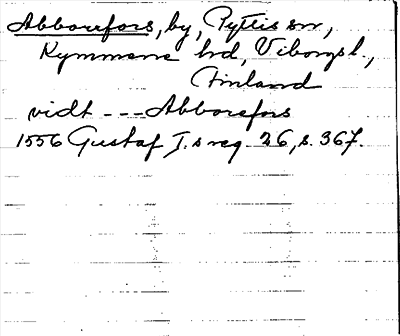 Abborrfors, by, Pyttis sn,
Kymmene hd, Viborgs l.,
Finland
vidt --- Abborefors
1556 Gustaf I.s reg. 26, s. 367.